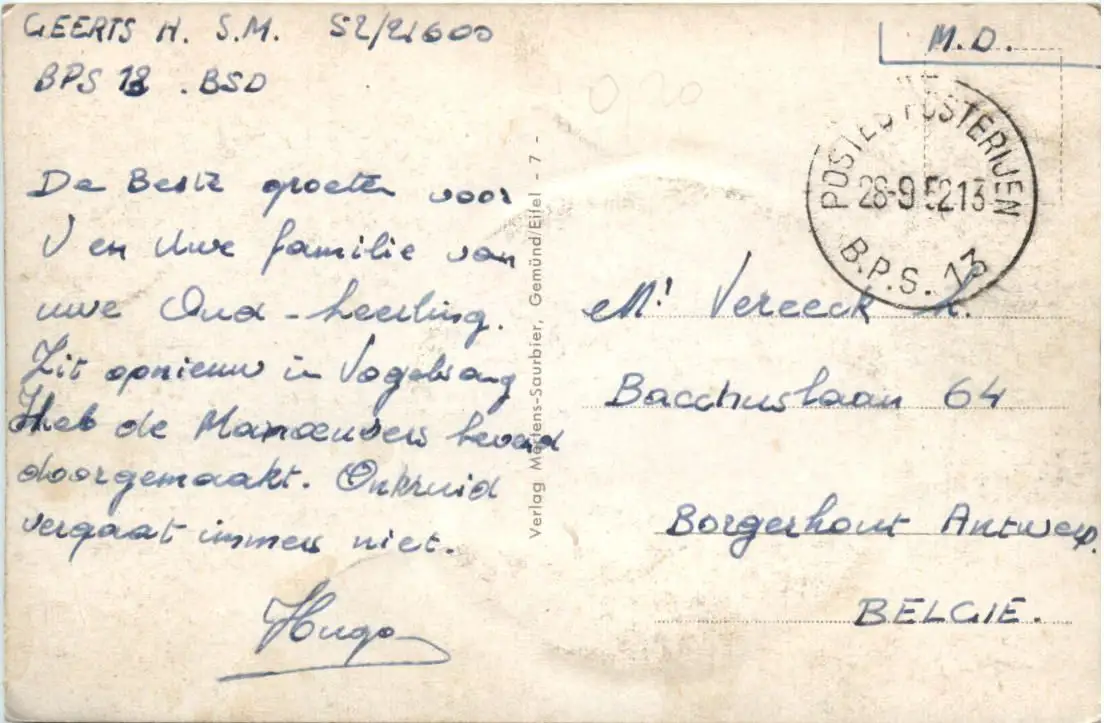 GEERTS H. S.M. 52/21600
BPS 13 . BSD
De Beste groeten voor
U en Uwe familie van
uwe Oud-leerling.
Zit opnieuw in Vogelsang
Heb de Manoeuvers levend
doorgemaakt. Onkruid
vergaat immers niet.
Hugo
Verlag Mertens-Saurbier, Gemünd/Eifel - 7 -
0,20
M.D.
POSTES POSTERIJEN
28-9 52 13
B.P.S. 13
Mr Vereeck L.
Bacchuslaan 64
Borgerhout Antwerp.
BELGIE.